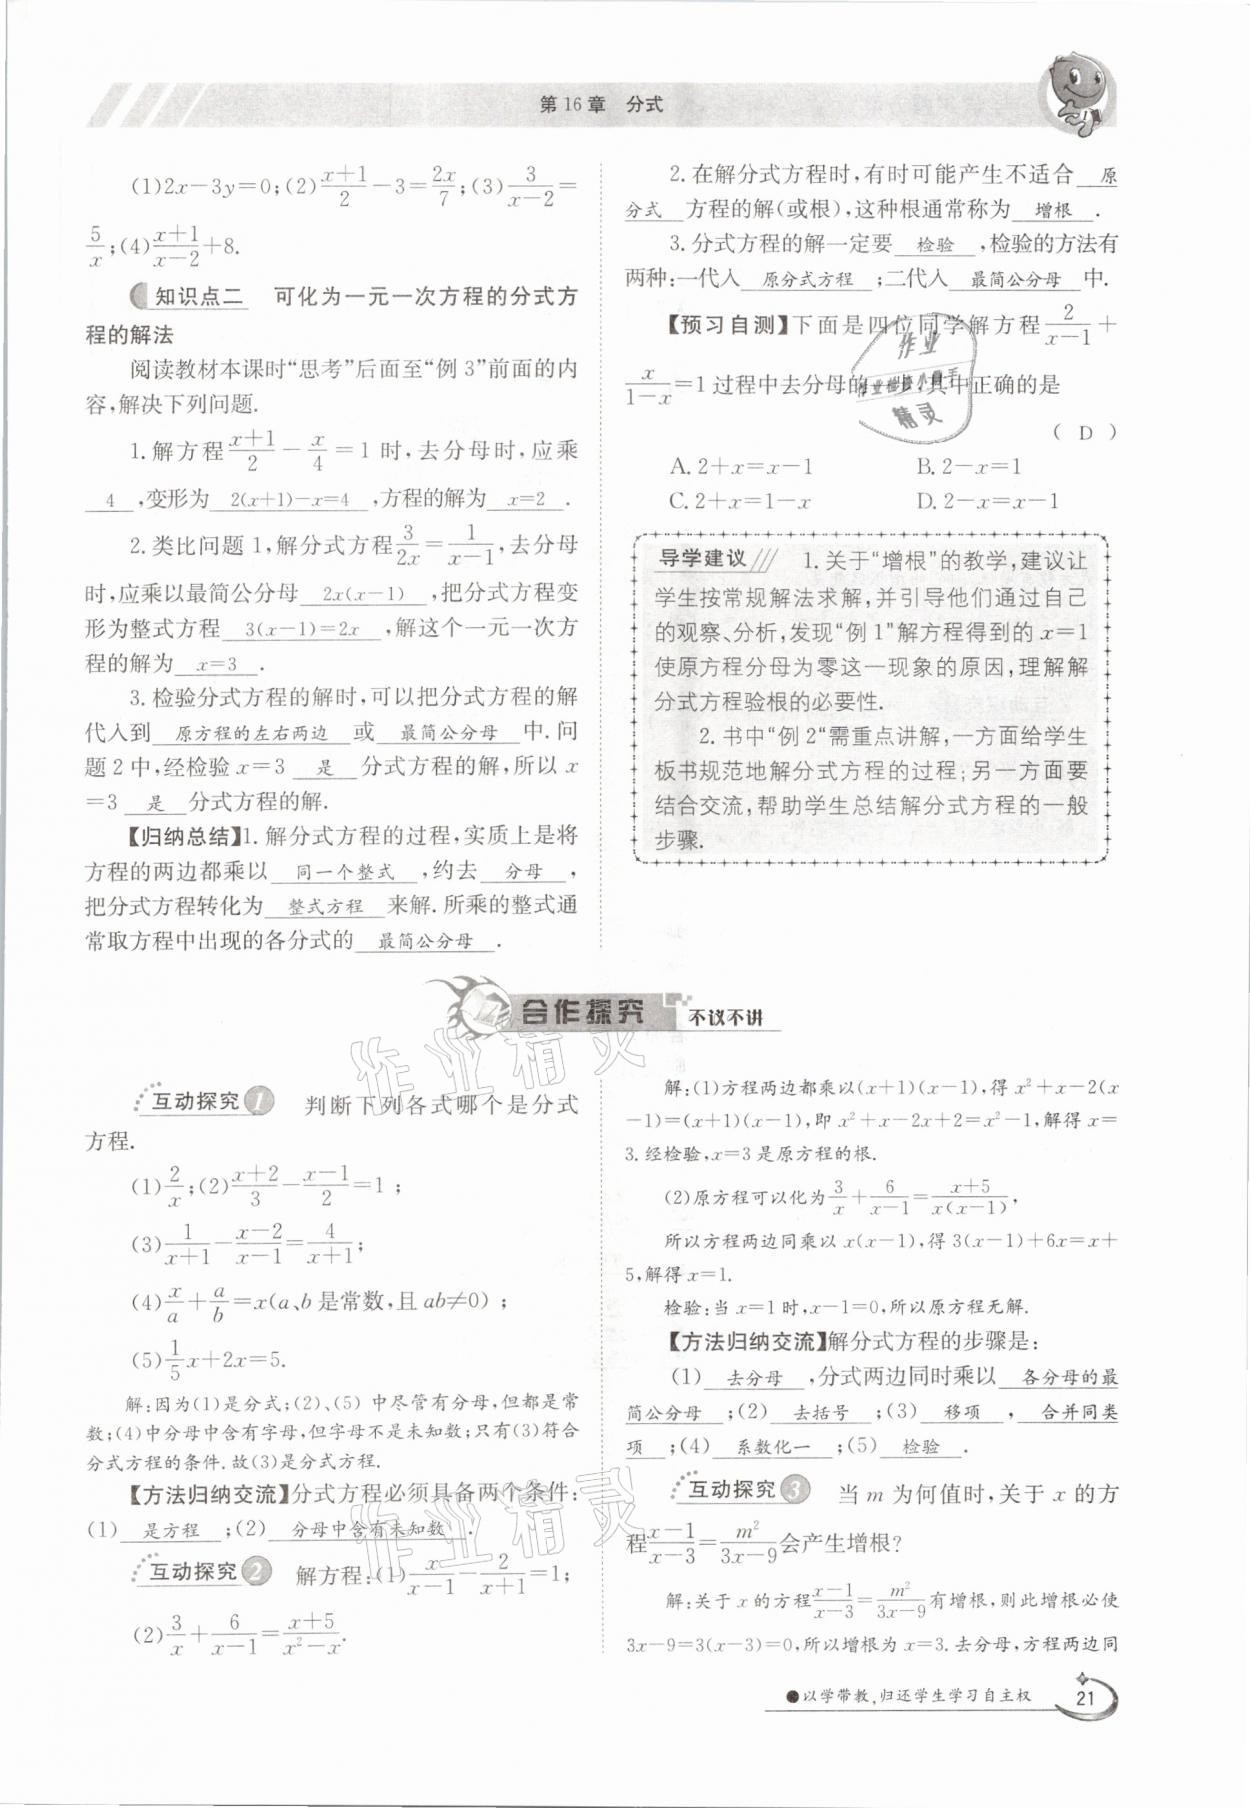 第16章 分式
(1)2x-3y=0;(2)(x+1)/2-3=2x/7;(3)3/(x-2)=
5/x;(4)(x+1)/(x-2)+8.
知识点二 可化为一元一次方程的分式方
程的解法
阅读教材本课时“思考”后面至“例3”前面的内
容,解决下列问题.
1.解方程(x+1)/2-x/4=1时,去分母时,应乘
4,变形为 2(x+1)-x=4,方程的解为 x=2.
2.类比问题1,解分式方程3/(2x)=1/(x-1),去分母
时,应乘以最简公分母 2x(x-1),把分式方程变
形为整式方程 3(x-1)=2x,解这个一元一次方
程的解为 x=3.
3.检验分式方程的解时,可以把分式方程的解
代入到 原方程的左右两边 或 最简公分母 中.问
题2中,经检验x=3 是 分式方程的解,所以x
=3 是 分式方程的解.
【归纳总结】1.解分式方程的过程,实质上是将
方程的两边都乘以 同一个整式,约去 分母,
把分式方程转化为 整式方程 来解.所乘的整式通
常取方程中出现的各分式的 最简公分母.
2.在解分式方程时,有时可能产生不适合 原
分式 方程的解(或根),这种根通常称为 增根.
3.分式方程的解一定要 检验,检验的方法有
两种:一代人 原分式方程;二代人 最简公分母 中.
【预习自测】下面是四位同学解方程2/(x-1)+
x/(1-x)=1过程中去分母的 ,其中正确的是
( D )
A.2+x=x-1 B.2-x=1
C.2+x=1-x D.2-x=x-1
作业
精灵
导学建议 1.关于“增根”的教学,建议让
学生按常规解法求解,并引导他们通过自己
的观察、分析,发现“例1”解方程得到的x=1
使原方程分母为零这一现象的原因,理解解
分式方程验根的必要性.
2.书中“例2“需重点讲解,一方面给学生
板书规范地解分式方程的过程;另一方面要
结合交流,帮助学生总结解分式方程的一般
步骤.
合作探究 不议不讲
互动探究1 判断下列各式哪个是分式
方程.
(1)2/x;(2)(x+2)/3-(x-1)/2=1;
(3)1/(x+1)-(x-2)/(x-1)=4/(x+1);
(4)x/a+a/b=x(a、b是常数,且ab≠0);
(5)1/5x+2x=5.
解:因为(1)是分式;(2)、(5)中尽管有分母,但都是常
数;(4)中分母中含有字母,但字母不是未知数;只有(3)符合
分式方程的条件.故(3)是分式方程.
【方法归纳交流】分式方程必须具备两个条件:
(1) 是方程;(2) 分母中含有未知数.
互动探究2 解方程:(1)x/(x-1)-2/(x+1)=1;
(2)3/x+6/(x-1)=(x+5)/(x²-x).
解:(1)方程两边都乘以(x+1)(x-1),得x²+x-2(x
-1)=(x+1)(x-1),即x²+x-2x+2=x²-1,解得x=
3.经检验,x=3是原方程的根.
(2)原方程可以化为3/x+6/(x-1)=(x+5)/(x(x-1)),
所以方程两边同乘以x(x-1),得3(x-1)+6x=x+
5,解得x=1.
检验:当x=1时,x-1=0,所以原方程无解.
【方法归纳交流】解分式方程的步骤是:
(1) 去分母,分式两边同时乘以 各分母的最
简公分母;(2) 去括号;(3) 移项,合并同类
项;(4) 系数化一;(5) 检验.
互动探究3 当m为何值时,关于x的方
程(x-1)/(x-3)=m²/(3x-9)会产生增根?
解:关于x的方程(x-1)/(x-3)=m²/(3x-9)有增根,则此增根必使
3x-9=3(x-3)=0,所以增根为x=3.去分母,方程两边同
●以学带教,归还学生学习自主权 21
作业精灵
作业精灵